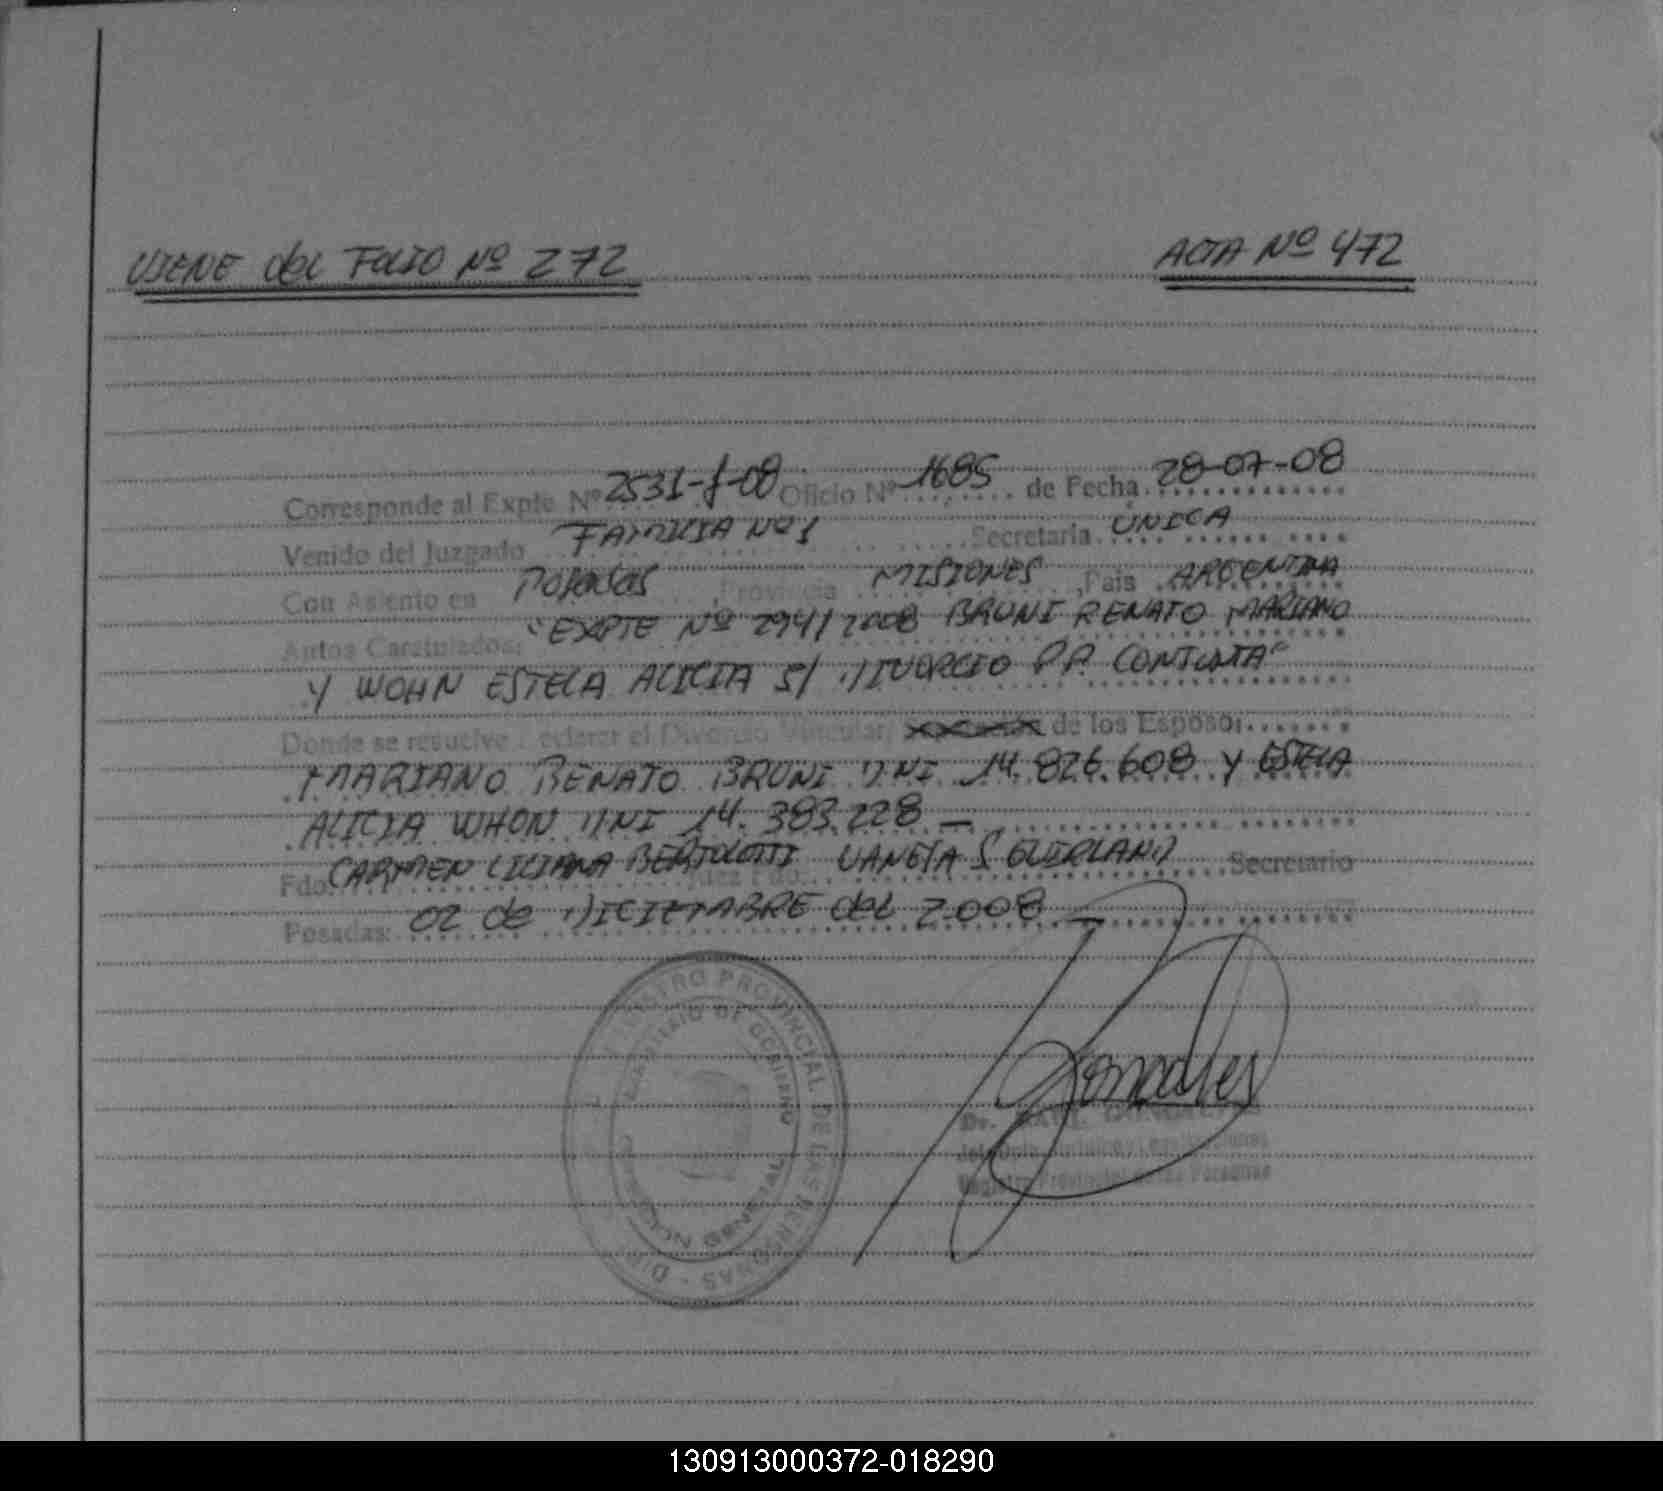 VIENE del FOLIO Nº 272 ACTA Nº 472
Corresponde al Expte Nº 2531-f-08 Oficio Nº 1685 de Fecha 28-07-08
Venido del Juzgado FAMILIA Nº 1 Secretaria UNICA
Con Asiento en Posadas, Provincia MISIONES, Pais ARGENTINA
Autos Caratulados: "EXPTE Nº 294/2008 BRUNI RENATO MARIANO
Y WOHN ESTELA ALICIA S/ DIVORCIO P.P. CONJUNTA"
Donde se resuelve: eclarar el Divorcio Vincular, de los Esposo:
MARIANO RENATO BRUNI DNI 14.826.608 Y ESTELA
ALICIA WHON DNI 14.383.228 —
Fdo: CARMEN LILIANA BERTOLOTTI Juez Fdo: VANESA S GUIRLAND Secretario
Posadas: 02 de DICIEMBRE del 2008 —
REGISTRO PROVINCIAL DE LAS PERSONAS
MINISTERIO DE GOBIERNO
DIRECCION GENERAL
Gonzales
Dr.
Registro Provincial de las Personas
130913000372-018290